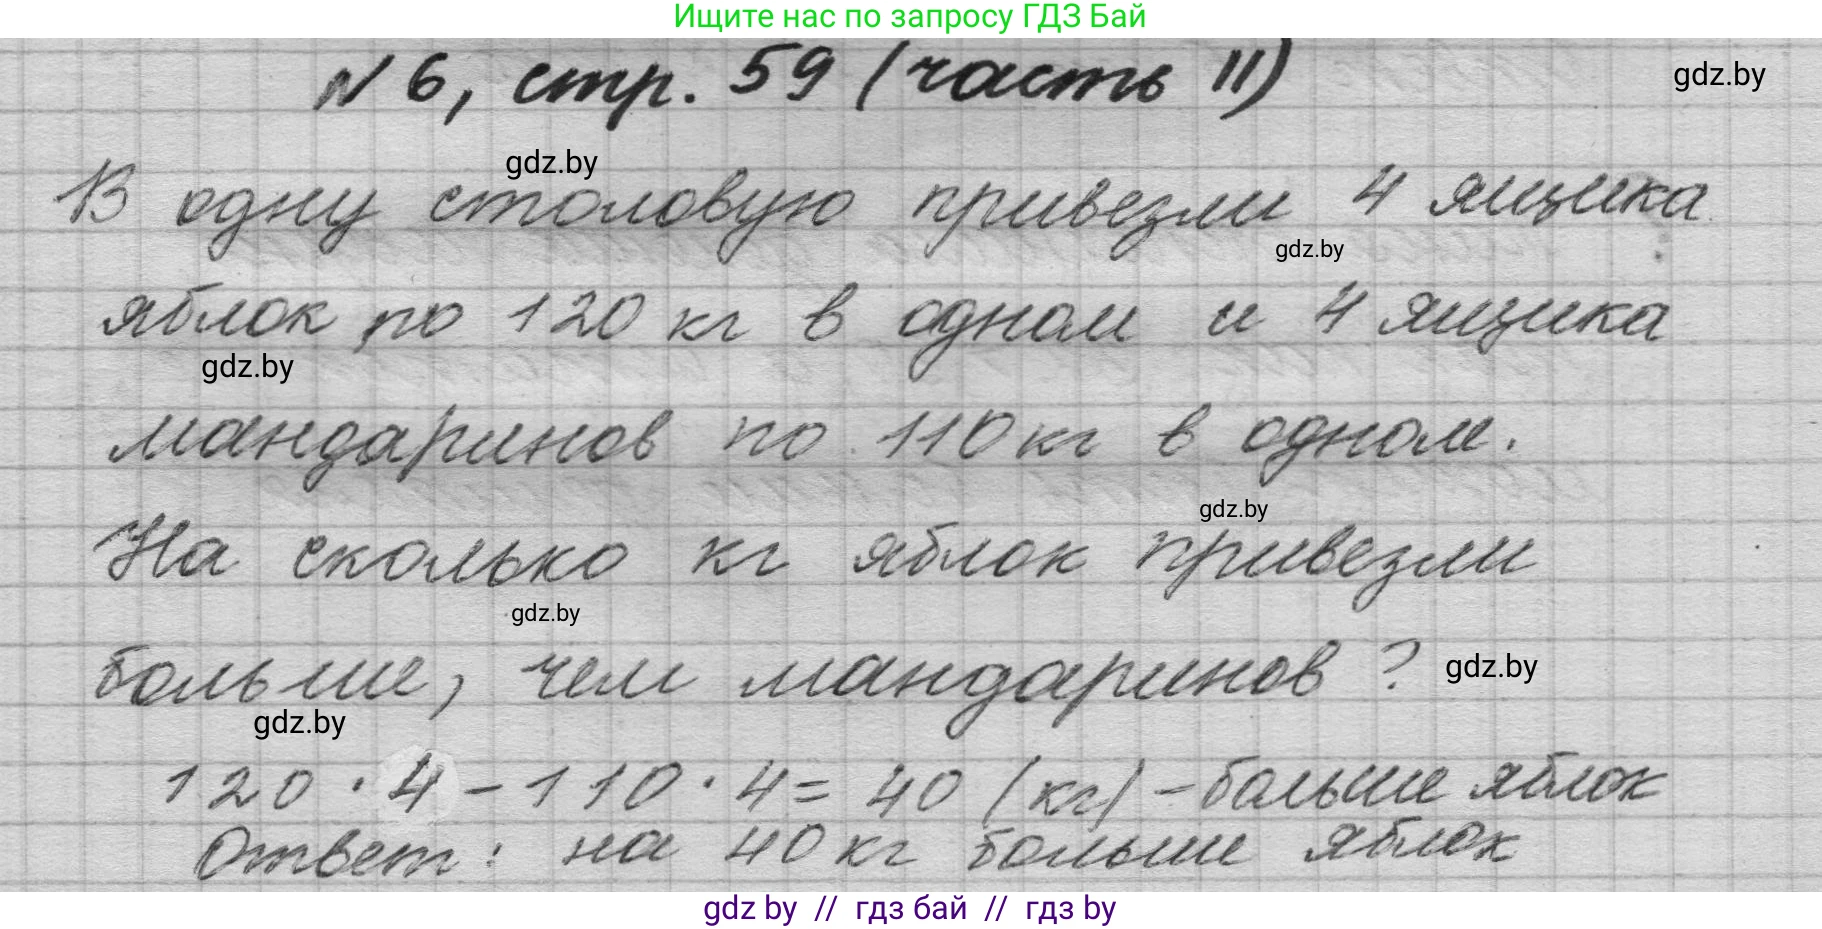 Ищите нас по запросу ГДЗ Бай
№ 6, стр. 59 (часть II)
gdz.by
gdz.by
В одну столовую привезли 4 ящика
gdz.by
яблок по 120 кг в одном и 4 ящика
gdz.by
мандаринов по 110 кг в одном.
gdz.by
На сколько кг яблок привезли
gdz.by
больше, чем мандаринов?
gdz.by
gdz.by
120 · 4 - 110 · 4 = 40 (кг) - больше яблок
Ответ: на 40 кг больше яблок
gdz by // гдз бай // гдз by